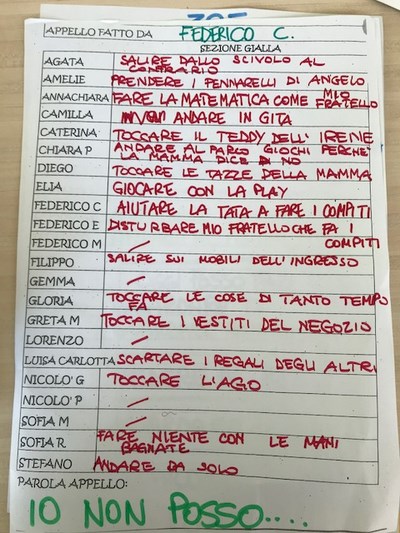 APPELLO FATTO DA FEDERICO C.
SEZIONE GIALLA
AGATA SALIRE DALLO SCIVOLO AL
CONTRARIO
AMELIE PRENDERE I PENNARELLI DI ANGELO
ANNACHIARA FARE LA MATEMATICA COME MIO
FRATELLO
CAMILLA ANDARE IN GITA
CATERINA TOCCARE IL TEDDY DELL'IRENE
CHIARA P ANDARE AL PARCO GIOCHI PERCHÉ
LA MAMMA DICE DI NO
DIEGO TOCCARE LE TAZZE DELLA MAMMA
ELIA GIOCARE CON LA PLAY
FEDERICO C AIUTARE LA TATA A FARE I COMPITI
FEDERICO E DISTURBARE MIO FRATELLO CHE FA I
COMPITI
FEDERICO M /
FILIPPO SALIRE SUI MOBILI DELL'INGRESSO
GEMMA /
GLORIA TOCCARE LE COSE DI TANTO TEMPO
FA
GRETA M TOCCARE I VESTITI DEL NEGOZIO
LORENZO /
LUISA CARLOTTA SCARTARE I REGALI DEGLI ALTRI
NICOLO' G TOCCARE L'AGO
NICOLO' P /
SOFIA M /
SOFIA R. FARE NIENTE CON LE MANI
BAGNATE
STEFANO ANDARE DA SOLO
PAROLA APPELLO:
IO NON POSSO....